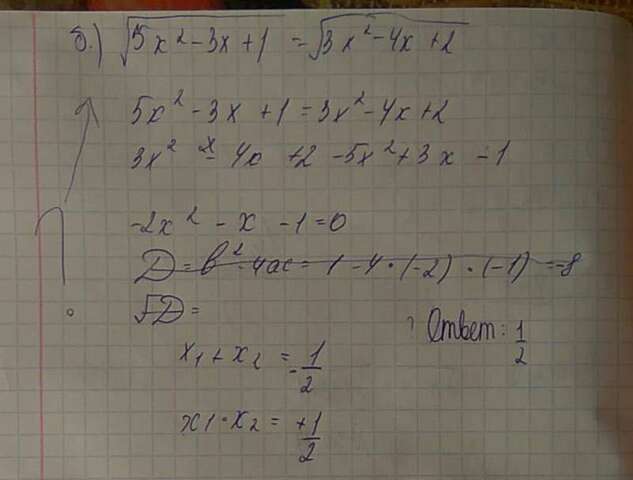 б.) √5x² - 3x + 1 = √3x² - 4x + 2
5x² - 3x + 1 = 3x² - 4x + 2
3x² - 4x + 2 - 5x² + 3x - 1
-2x² - x - 1 = 0
D = b² - 4ac = 1 - 4 · (-2) · (-1) = -8
√D =
x₁ + x₂ = -1/2
Ответ: 1/2
x₁ · x₂ = +1/2